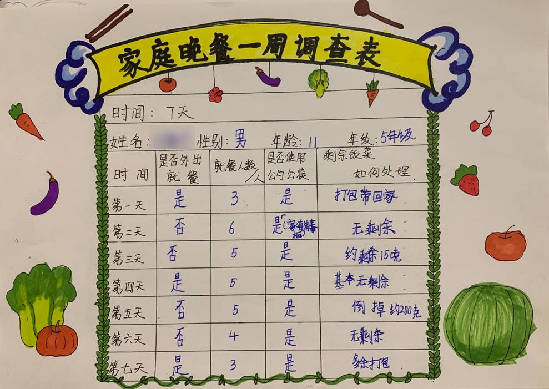 家庭晚餐一周调查表
时间：7天
姓名： 性别：男 年龄：11 年级：5年级
时间 是否外出就餐 就餐人数/人 是否使用公勺公筷 剩余饭菜如何处理
第一天 是 3 是 打包带回家
第二天 否 6 是 无剩余
第三天 否 5 是 约剩余15克
第四天 是 5 是 基本无剩余
第五天 否 5 是 倒掉约200克
第六天 否 4 是 无剩余
第七天 是 3 是 打包